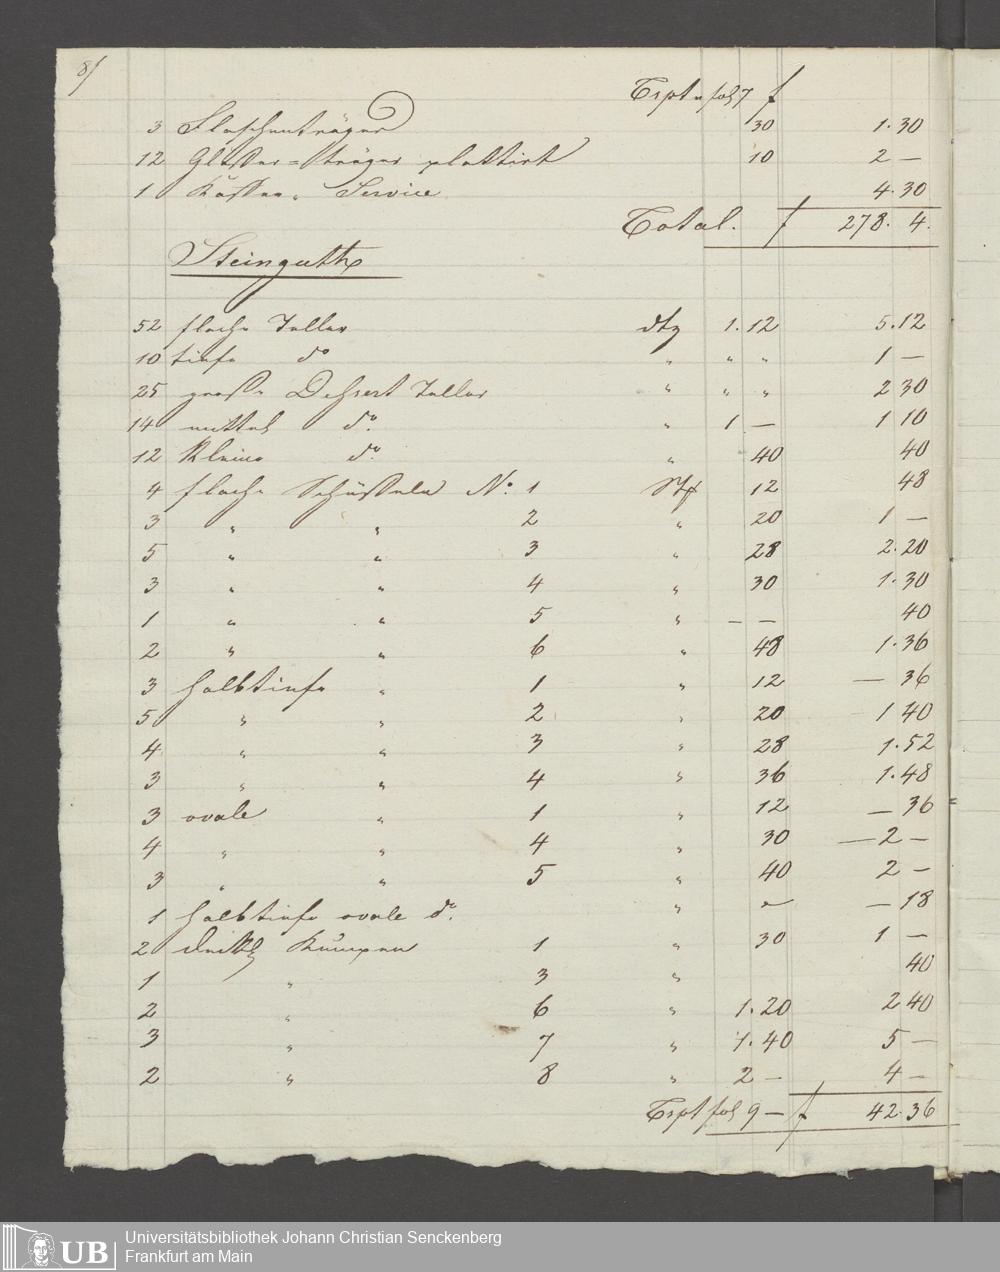 8/
Trspt v fol 7 f
3 Flaschenträger 30 1.30
12 Gläser=träger plattirt 10 2 —
1 Service 4.30
Total. f 278. 4.
Steinguth
52 flache Teller dtz 1.12 5.12
10 tiefe do " " " 1 —
25 große Dessert Teller " " " 2 30
14 mittel do. " 1 — 1 10
12 kleine do. " 40 40
4 flache Schüsseln No. 1 Stk 12 48
3 " " 2 " 20 1 —
5 " " 3 " 28 2.20
3 " " 4 " 30 1.30
1 " " 5 " — — 40
2 " " 6 " 48 1.36
3 halbtiefe " 1 " 12 — 36
5 " " 2 " 20 1 40
4 " " 3 " 28 1.52
3 " " 4 " 36 1.48
3 ovale " 1 " 12 — 36
4 " " 4 " 30 — 2 —
3 " " 5 " 40 2 —
1 halbtiefe ovale do. " — 18
2 Kumpen 1 " 30 1 —
1 " 3 " 40
2 " 6 " 1.20 2 40
3 " 7 " 1.40 5 —
2 " 8 " 2 — 4 —
Trspt fol 9 — f 42.36
UB Universitätsbibliothek Johann Christian Senckenberg
Frankfurt am Main